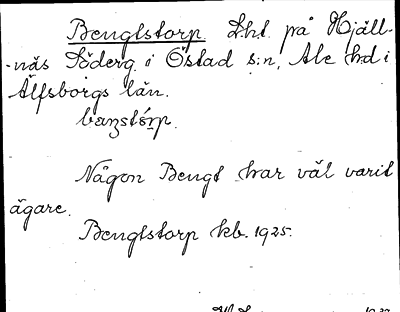 Bengtstorp. Lht på Hjäll-
-näs Söderg. i Östad s:n, Ale hd i
Älfsborgs län.
Någon Bengt har väl varit
ägare.
Bengtstorp kb. 1925.